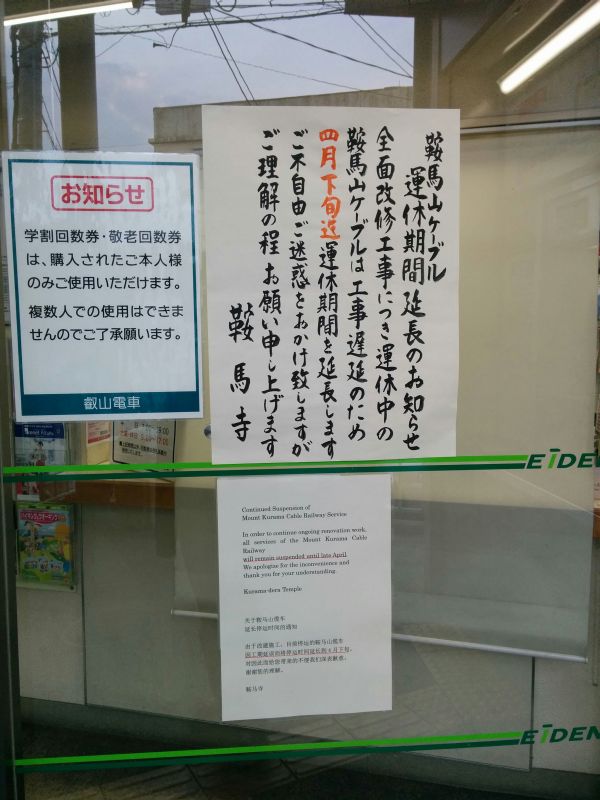 お知らせ
学割回数券・敬老回数券
は、購入されたご本人様
のみご使用いただけます。
複数人での使用はできま
せんのでご了承願います。
叡山電車
鞍馬山ケーブル
運休期間延長のお知らせ
全面改修工事につき運休中の
鞍馬山ケーブルは工事遅延のため
四月下旬迄運休期間を延長します
ご不自由ご迷惑をおかけ致しますが
ご理解の程お願い申し上げます
鞍馬寺
EIDEN
Continued Suspension of
Mount Kurama Cable Railway Service
In order to continue ongoing renovation work,
all services of the Mount Kurama Cable
Railway
will remain suspended until late April.
We apologize for the inconvenience and
thank you for your understanding.
Kurama-dera Temple
关于鞍马山缆车
延长停运时间的通知
由于改建施工，目前停运的鞍马山缆车
因工期延误而将停运时间延长到4月下旬。
对因此而给您带来的不便我们深表歉意。
谢谢您的理解。
鞍马寺
EIDEN